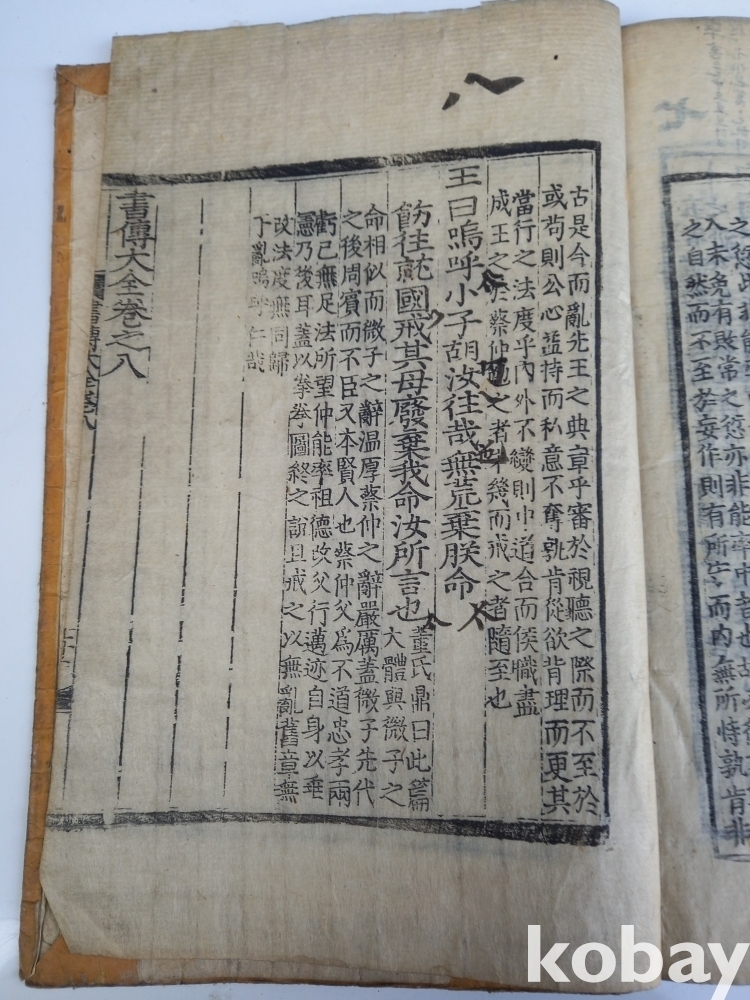 八
古是今而亂先王之典章乎審於視聽之際而不至於
或苟則公心益持而私意不奪孰肯從欲背理而更其
當行之法度乎內外不變則中道合而侯職盡
成王之於蔡仲勉之者 幾而戒之者隨至也
王曰嗚呼小子胡汝往哉無荒棄朕命
飭往就國戒其毋廢棄我命汝所言也
董氏鼎曰此篇
大體與微子之
命相似而微子之辭溫厚蔡仲之辭嚴厲蓋微子先代
之後周賓而不臣又本賢人也蔡仲父爲不道忠孝兩
虧已無足法所望仲能率祖德改父行邁迹自身以垂
憲乃後耳蓋以拳拳圖終之 且戒之以無亂舊章無
改法度無同歸
于亂嗚呼仁哉
書傳大全卷之八
書傳大全卷八
七
入未免有敗常之愆亦非能率中者也
之自然而不至於妄作則有所 而內無所恃孰肯非
kobay